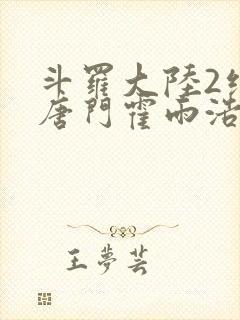 斗羅大陸2
唐門霍雨浩
王夢芸